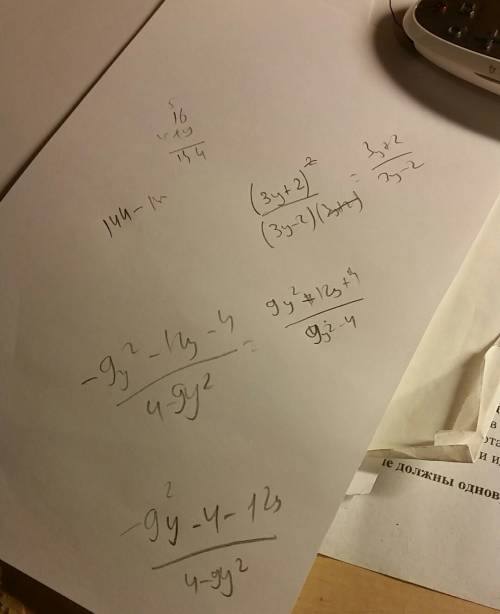 16
144 -
(3y+2)² / (3y-2)(3y+2) = 3y+2 / 3y-2
-9y² - 12y - 4 / 4-9y² = 9y² + 12y + 4 / 9y² - 4
-9y² - 4 - 12y / 4-9y²
в
и и
не должны однов